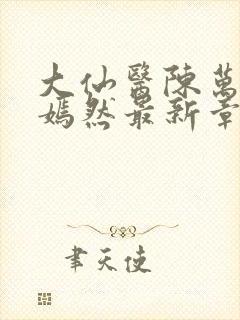 大仙醫陳萬
嫣然最新章
聿天使